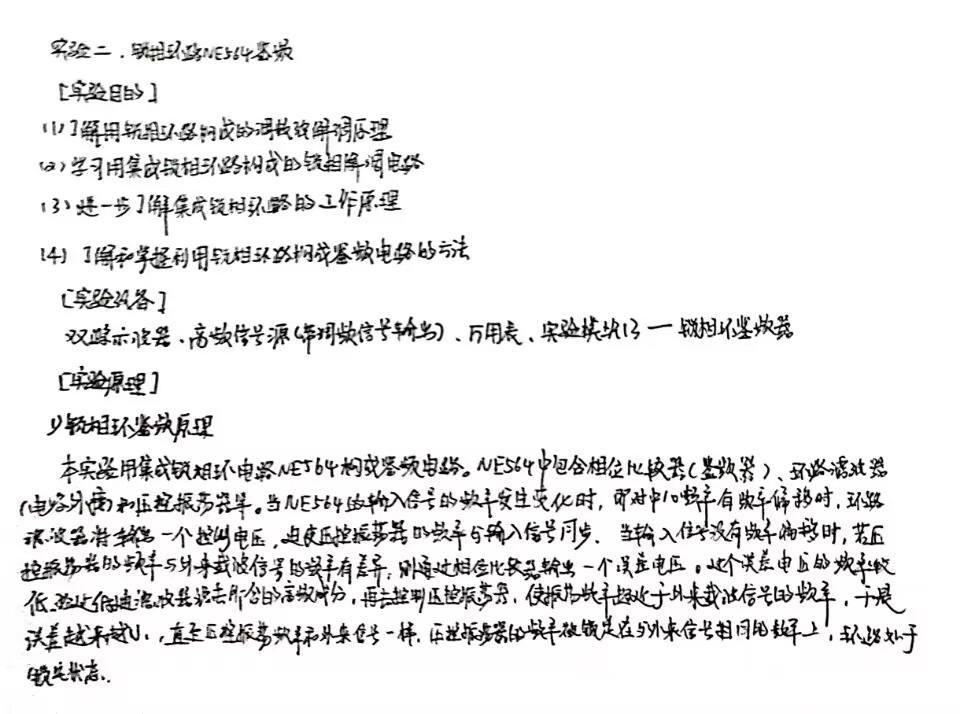 实验二、锁相环路NE564鉴频
[实验目的]
(1)了解用锁相环路构成的调频波解调原理
(2)学习用集成锁相环路构成的锁相解调电路
(3)进一步了解集成锁相环路的工作原理
(4)了解和掌握利用锁相环路构成鉴频电路的方法
[实验设备]
双踪示波器、高频信号源(带调频信号输出)、万用表、实验模块13—锁相环鉴频器
[实验原理]
1)锁相环鉴频原理
本实验用集成锁相环电路NE564构成鉴频电路。NE564中包含相位比较器(鉴频器)、环路滤波器
(电容外接)和压控振荡器等。当NE564的输入信号的频率发生变化时,即对中心频率有频率偏移时,环路
滤波器将输出一个控制电压,迫使压控振荡器的频率与输入信号同步。当输入信号没有频率偏移时,若压
控振荡器的频率与外来载波信号的频率有差异,则通过相位比较器输出一个误差电压。这个误差电压的频率较
低,经过低通滤波器滤去所含的高频成份,再去控制压控振荡器,使振荡频率趋近于外来载波信号的频率,于是
误差越来越小,直至压控振荡频率和外来信号一样,压控振荡器的频率被锁定在与外来信号相同的频率上,环路处于
锁定状态.